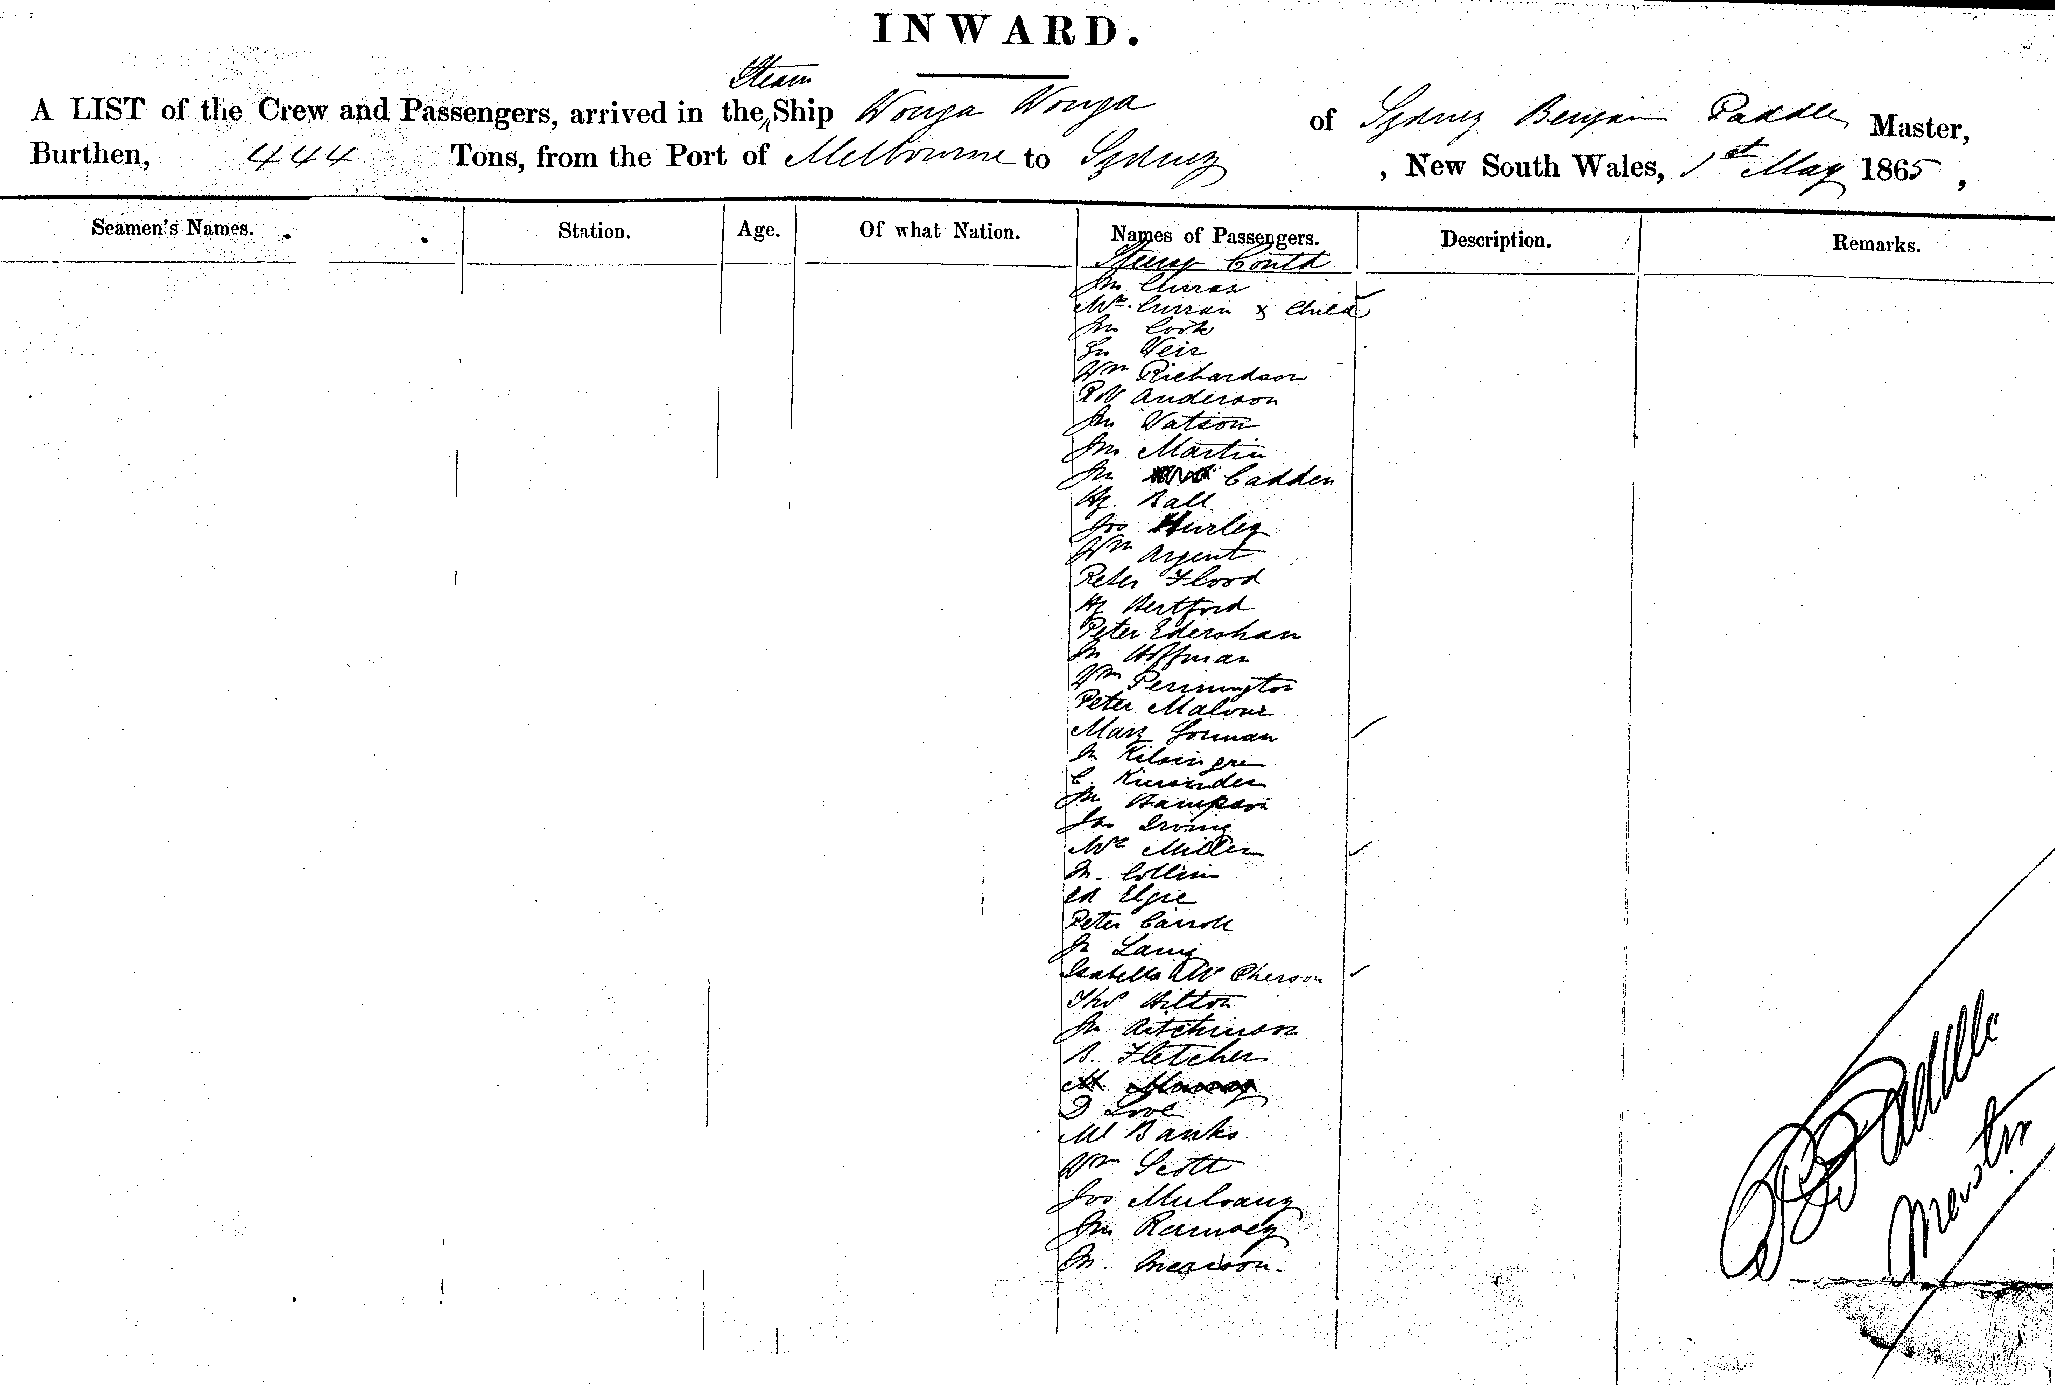 INWARD.
Steam
A LIST of the Crew and Passengers, arrived in the Ship Wonga Wonga of Sydney Benjamin Paddle, Master,
Burthen, 444 Tons, from the Port of Melbourne to Sydney, New South Wales, 1st May 1865,
Seamen's Names. Station. Age. Of what Nation. Names of Passengers. Description. Remarks.
Henry Contd
Jno Curran
Mrs. Curran & Child
Jno Cook
Jno Weir
Wm Richardson
Rob Anderson
Jno Watson
Jno Martin
Jno Cadden
Hy Ball
Jos Hurley
Wm Argent
Peter Flood
Hy Bertford
Peter Edershan
Jno Hoffman
Wm Pennington
Peter Malone
Mary Gorman
Jno
C.
Jno Bampson
Jas Irving
Mrs Miller
Jno Collins
Ed Elgie
Peter Carroll
Jno Laing
Isabella McPherson
Thos Hilton
Jno Aitchinson
B. Fletcher
M Murray
D Love
Ml Banks
Wm Scott
Jos Mulvany
Jno Ramsey
Jno.
B Paddle
Master